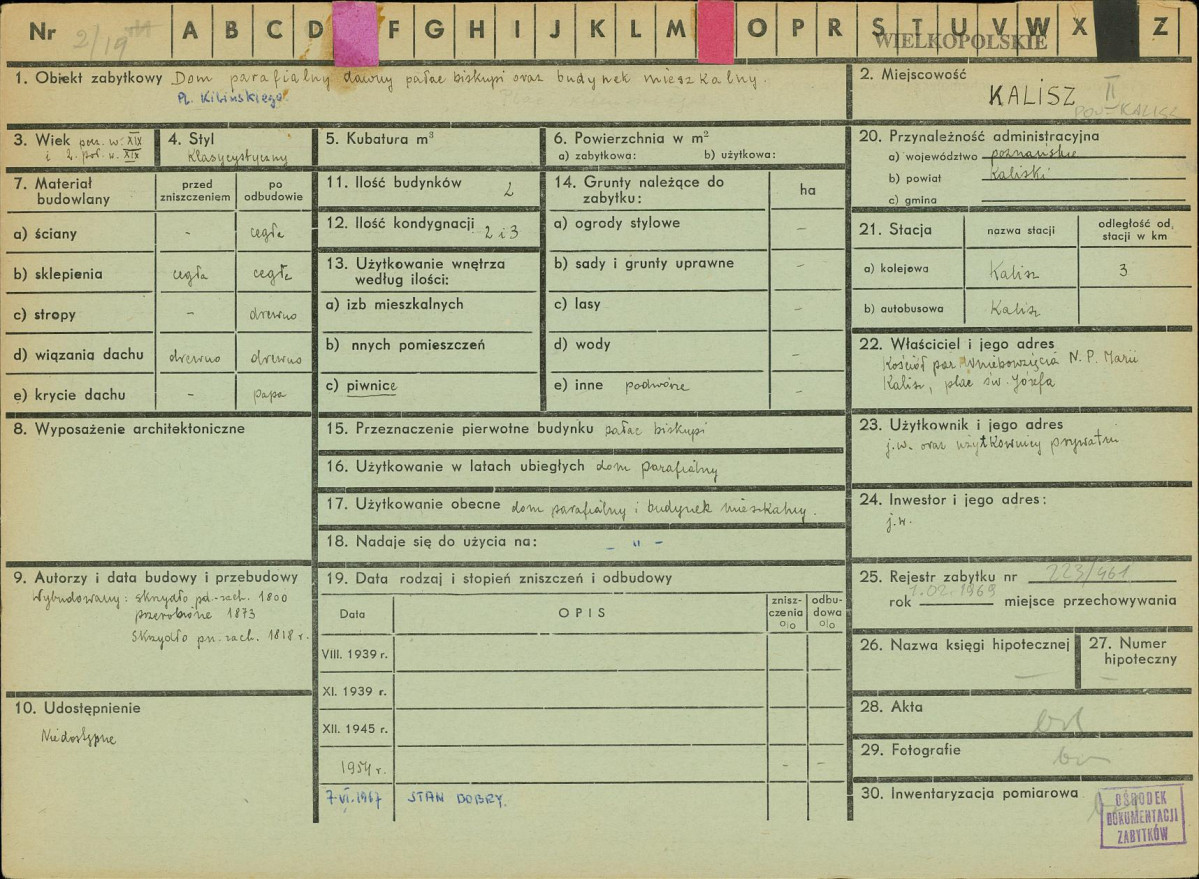 Nr 2/19 A B C D F G H I J K L M O P R S T U V W X Z
WIELKOPOLSKIE
1. Obiekt zabytkowy Dom parafialny dawny pałac biskupi oraz budynek mieszkalny.
Pl. Kilińskiego
2. Miejscowość
KALISZ II
POW-KALISZ
3. Wiek pocz. w. XIX
i 2. poł. w. XIX
4. Styl
Klasycystyczny
5. Kubatura m³
6. Powierzchnia w m²
a) zabytkowa: b) użytkowa:
7. Materiał budowlany
przed zniszczeniem
po odbudowie
a) ściany - cegła
b) sklepienia cegła cegła
c) stropy - drewno
d) wiązania dachu drewno drewno
e) krycie dachu - papa
8. Wyposażenie architektoniczne
9. Autorzy i data budowy i przebudowy
Wybudowany: skrzydło pd.-zach. 1800
przerobione 1873
Skrzydło pn. zach. 1818 r.
10. Udostępnienie
Niedostępne
11. Ilość budynków 2
12. Ilość kondygnacji 2 i 3
13. Użytkowanie wnętrza
według ilości:
a) izb mieszkalnych
b) nnych pomieszczeń
c) piwnice
14. Grunty należące do
zabytku: ha
a) ogrody stylowe -
b) sady i grunty uprawne -
c) lasy -
d) wody -
e) inne podwórze -
15. Przeznaczenie pierwotne budynku pałac biskupi
16. Użytkowanie w latach ubiegłych dom parafialny
17. Użytkowanie obecne dom parafialny i budynek mieszkalny.
18. Nadaje się do użycia na: - " -
19. Data rodzaj i stopień zniszczeń i odbudowy
Data OPIS zniszczenia % odbudowa %
VIII. 1939 r.
XI. 1939 r.
XII. 1945 r.
1954 r. - -
7 VI. 1967 STAN DOBRY.
20. Przynależność administracyjna
a) województwo poznańskie
b) powiat Kaliski
c) gmina
21. Stacja nazwa stacji odległość od stacji w km
a) kolejowa Kalisz 3
b) autobusowa Kalisz
22. Właściciel i jego adres
Kościół par Wniebowzięcia N. P. Marii
Kalisz, plac św. Józefa
23. Użytkownik i jego adres
j.w. oraz użytkownicy prywatni
24. Inwestor i jego adres:
j.w.
25. Rejestr zabytku nr 223/461
rok 1.02.1969 miejsce przechowywania
26. Nazwa księgi hipotecznej -
27. Numer hipoteczny -
28. Akta
29. Fotografie
30. Inwentaryzacja pomiarowa
OŚRODEK
DOKUMENTACJI
ZABYTKÓW